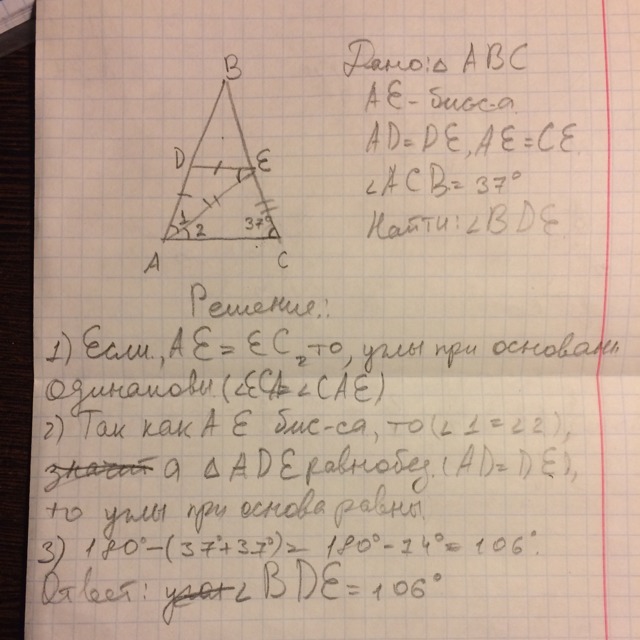 B
D
E
1
2
37°
A
C
Дано: △ ABC
AE - бисс-а
AD=DE, AE=CE
∠ACB=37°
Найти: ∠BDE
Решение:
1) Если, AE = EC, то, углы при основани
одинаковы (∠ECA=∠CAE)
2) Так как AE бис-са, то (∠1=∠2),
значит а △ADE равнобед. (AD=DE),
то углы при основа равны.
3) 180°-(37°+37°)= 180°-74°=106°.
Ответ: угол ∠BDE=106°